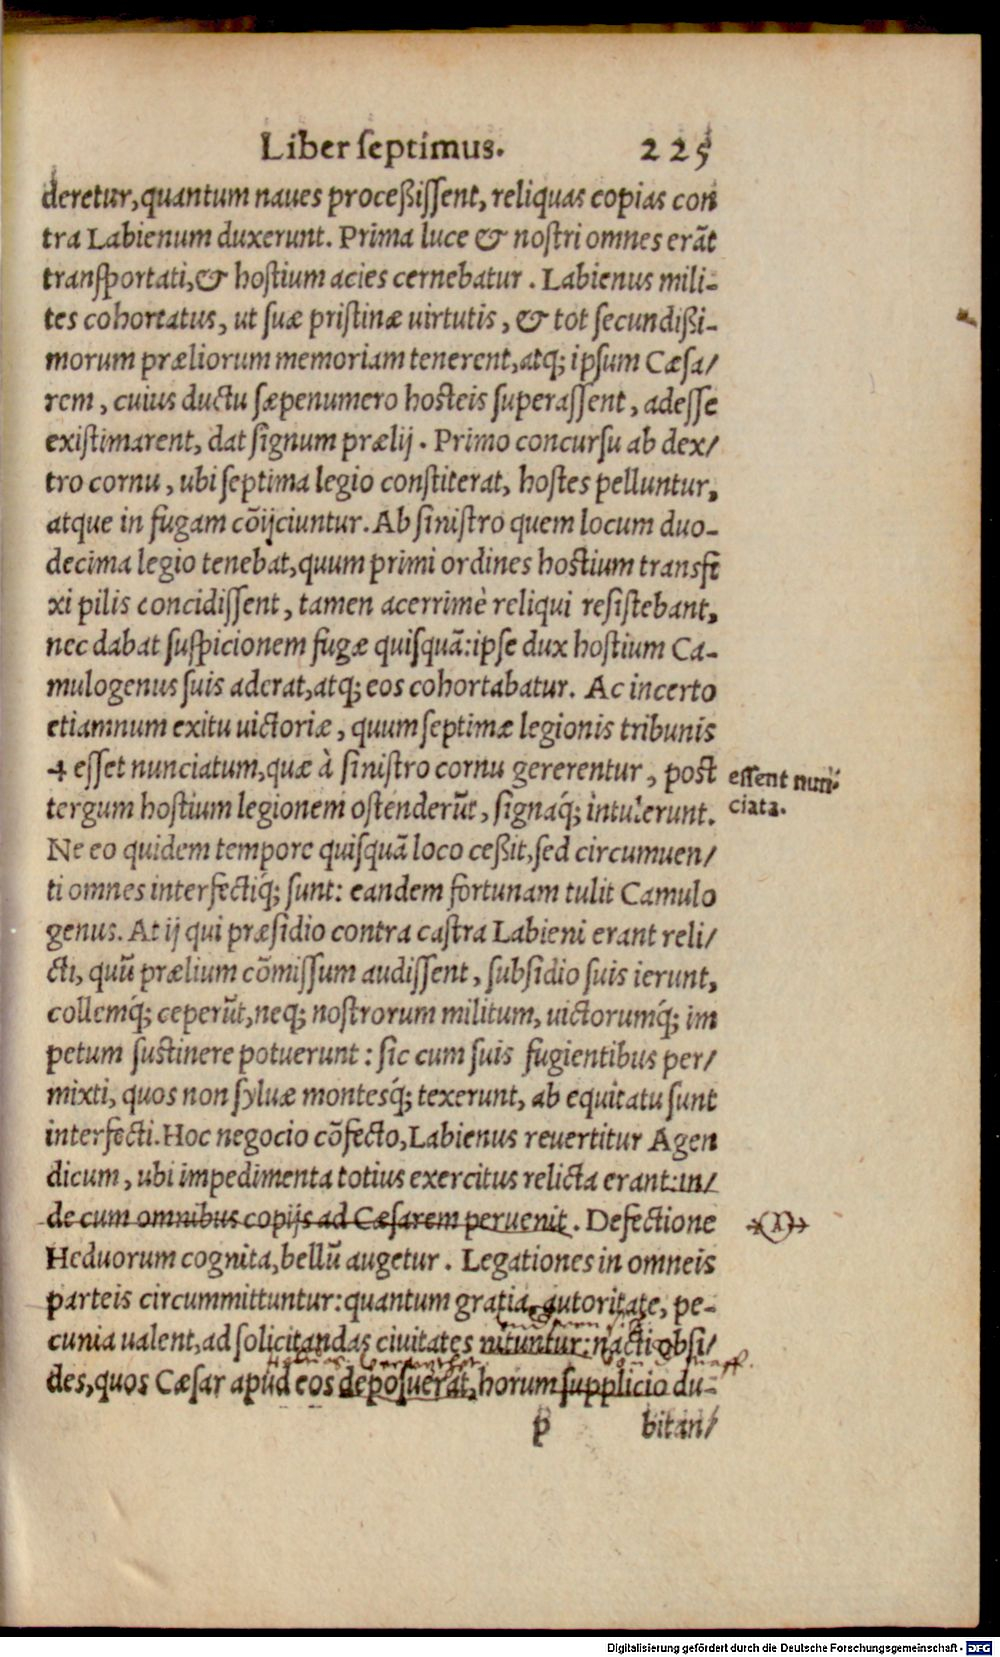 Liber septimus. 225
deretur, quantum naues proceßissent, reliquas copias con
tra Labienum duxerunt. Prima luce & nostri omnes erãt
transportati, & hostium acies cernebatur. Labienus mili-
tes cohortatus, ut suæ pristinæ uirtutis, & tot secundißi-
morum præliorum memoriam tenerent, atq; ipsum Cæsa/
rem, cuius ductu sæpenumero hosteis superassent, adesse
existimarent, dat signum prælij. Primo concursu ab dex/
tro cornu, ubi septima legio constiterat, hostes pelluntur,
atque in fugam cõijciuntur. Ab sinistro quem locum duo-
decima legio tenebat, quum primi ordines hostium transfi
xi pilis concidissent, tamen acerrimè reliqui resistebant,
nec dabat suspicionem fugæ quisquã: ipse dux hostium Ca-
mulogenus suis aderat, atq; eos cohortabatur. Ac incerto
etiamnum exitu uictoriæ, quum septimæ legionis tribunis
esset nunciatum, quæ à sinistro cornu gererentur, post
essent nun-
ciata.
tergum hostium legionem ostenderũt, signaq́; intulerunt.
Ne eo quidem tempore quisquã loco ceßit, sed circumuen/
ti omnes interfectiq́; sunt: eandem fortunam tulit Camulo
genus. At ij qui præsidio contra castra Labieni erant reli/
cti, quũ prælium cõmissum audissent, subsidio suis ierunt,
collemq́; ceperũt, neq; nostrorum militum, uictorumq́; im
petum sustinere potuerunt: sic cum suis fugientibus per/
mixti, quos non syluæ montesq́; texerunt, ab equitatu sunt
interfecti. Hoc negocio cõfecto, Labienus reuertitur Agen
dicum, ubi impedimenta totius exercitus relicta erant: in/
de cum omnibus copijs ad Cæsarem peruenit. Defectione
Heduorum cognita, bellũ augetur. Legationes in omneis
parteis circummittuntur: quantum gratia, autoritate, pe-
cunia ualent, ad solicitandas ciuitates nituntur: nacti obsi/
des, quos Cæsar apud eos deposuerat, horum supplicio du-
p bitan/
Digitalisierung gefördert durch die Deutsche Forschungsgemeinschaft - DFG